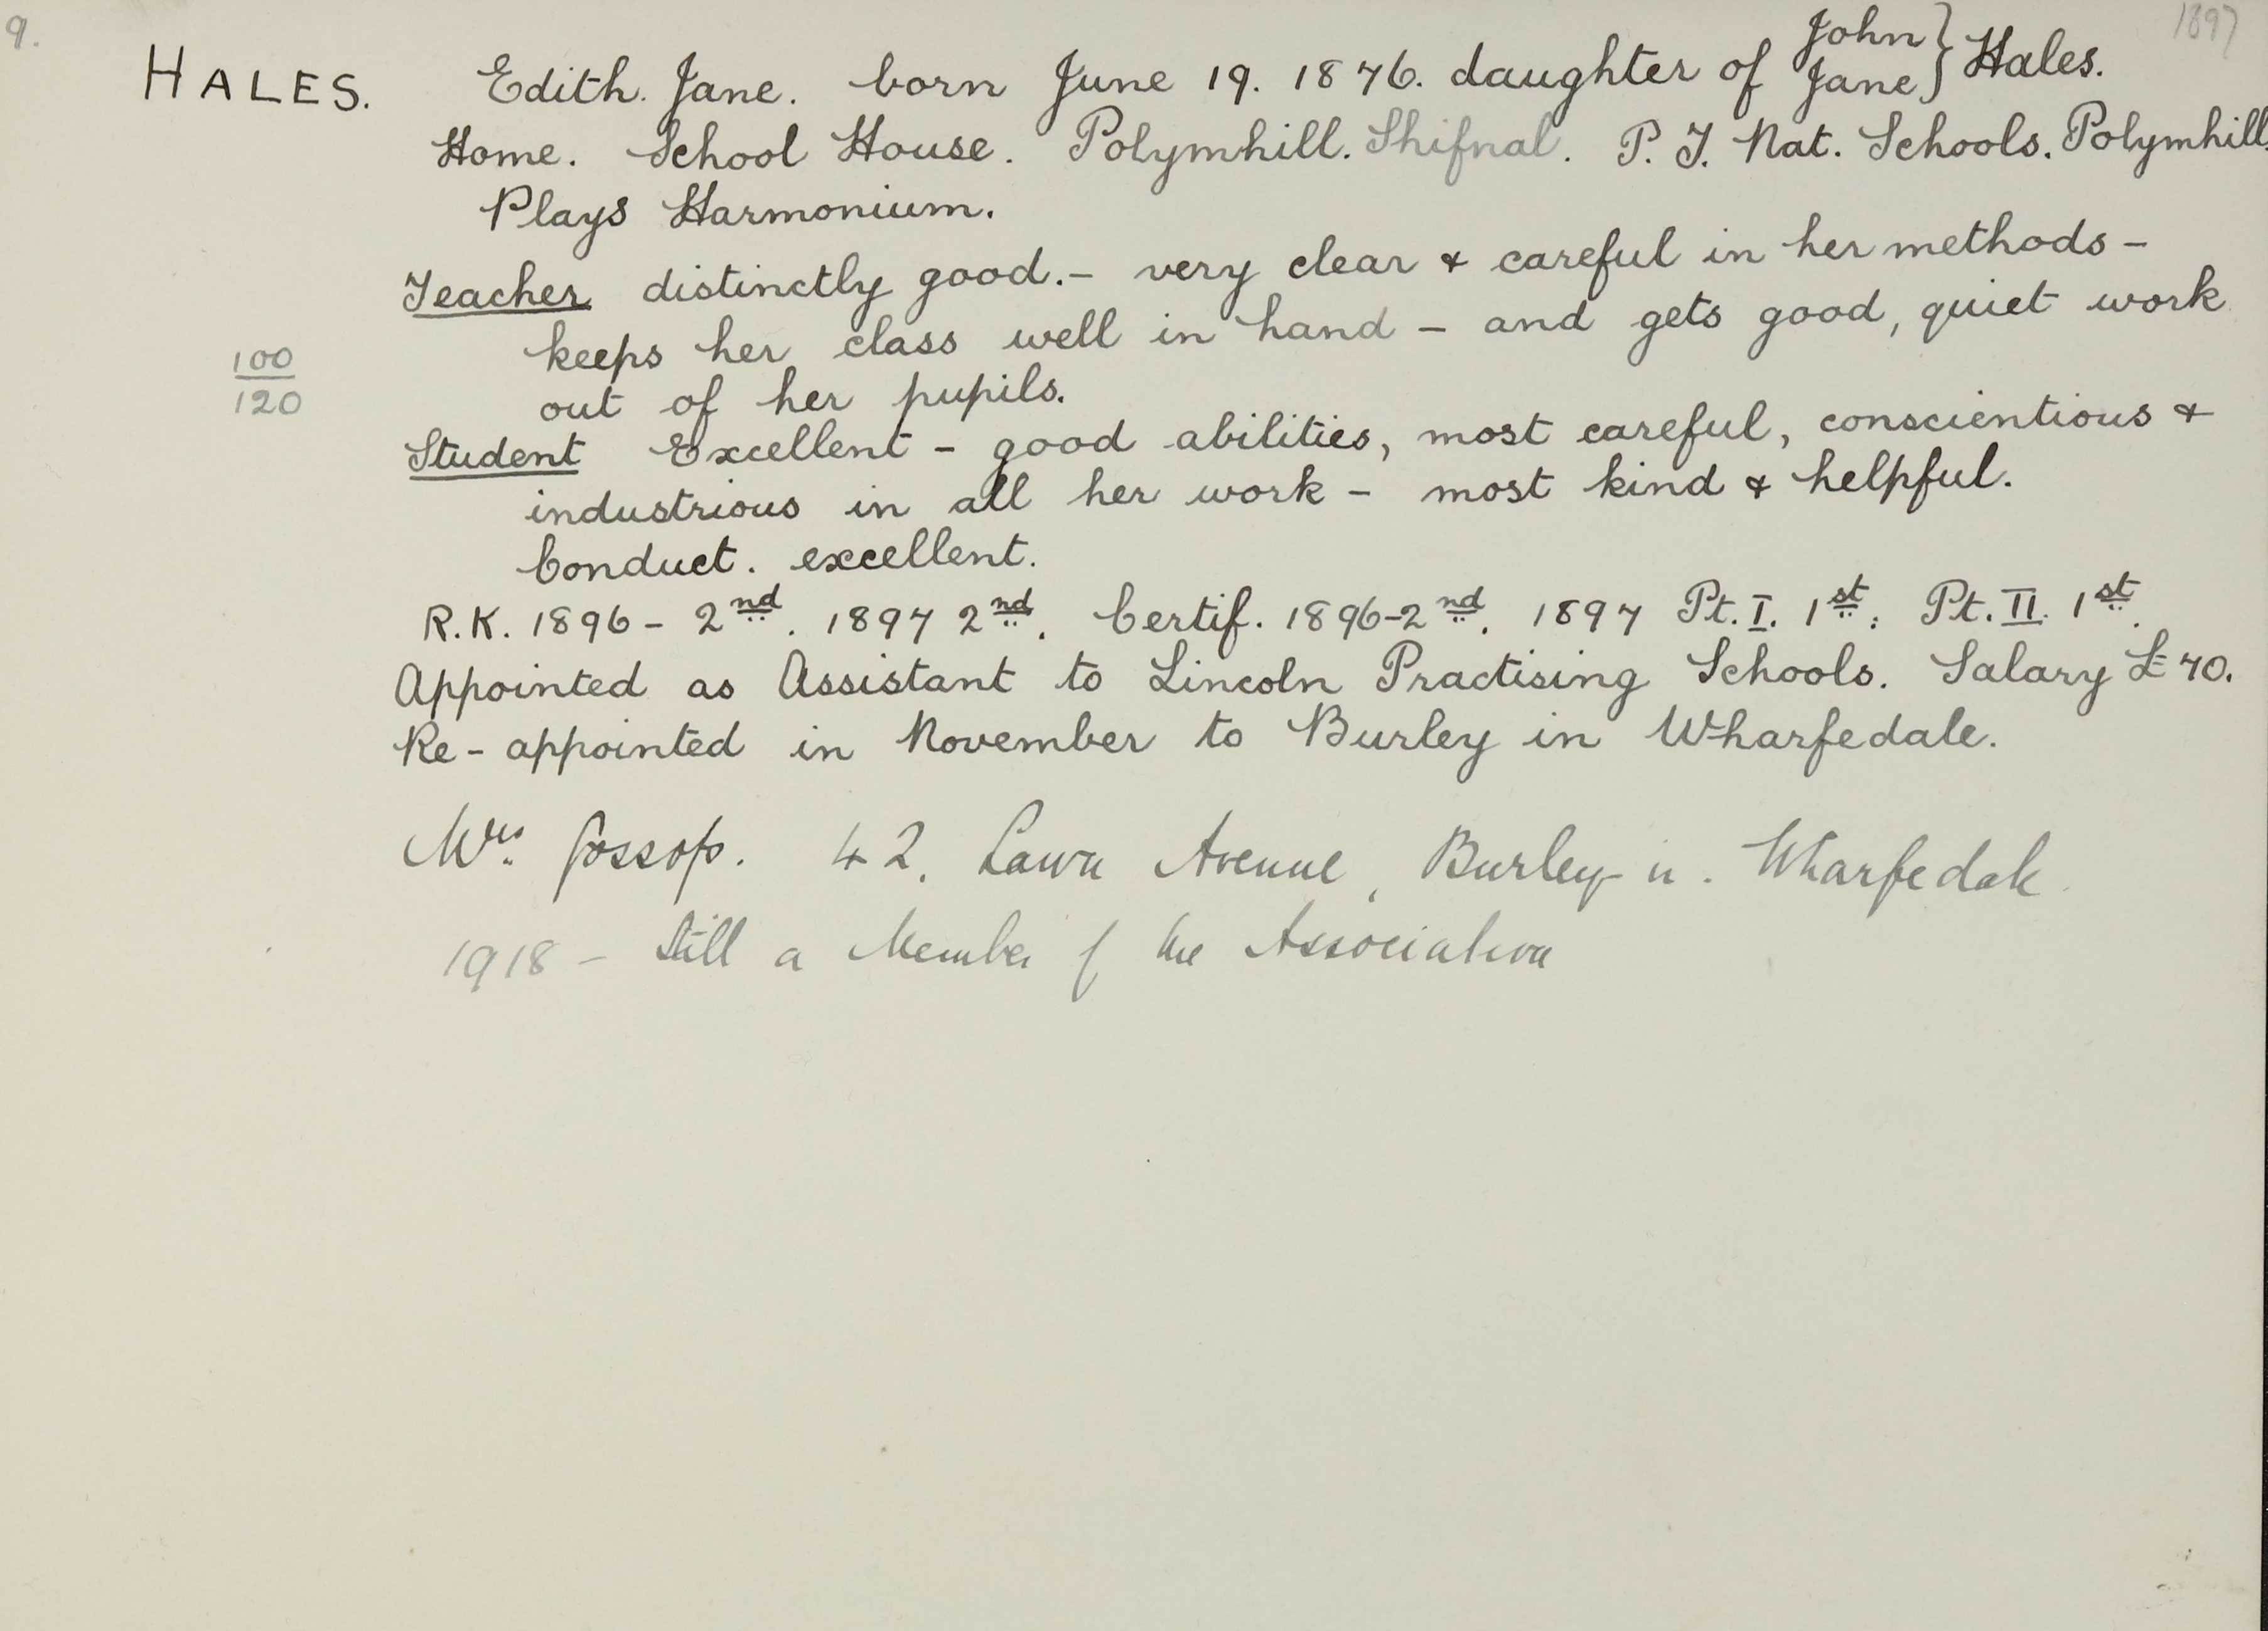 9.
1897
HALES. Edith. Jane. born June 19. 1876. daughter of John } Hales.
Jane }
Home. School House. Polymhill. Shifnal. P. T. Nat. Schools. Polymhill.
Plays Harmonium.
Teacher distinctly good. - very clear & careful in her methods -
keeps her class well in hand - and gets good, quiet work
out of her pupils.
100
120
Student Excellent - good abilities, most careful, conscientious &
industrious in all her work - most kind & helpful.
Conduct. excellent.
R.K. 1896 - 2nd. 1897 2nd. Certif. 1896-2nd. 1897 Pt. I. 1st: Pt. II. 1st.
Appointed as Assistant to Lincoln Practising Schools. Salary £70.
Re-appointed in November to Burley in Wharfedale.
Mrs. Jossop. 42, Lawn Avenue, Burley-in. Wharfedale.
1918 - Still a Member of the Association